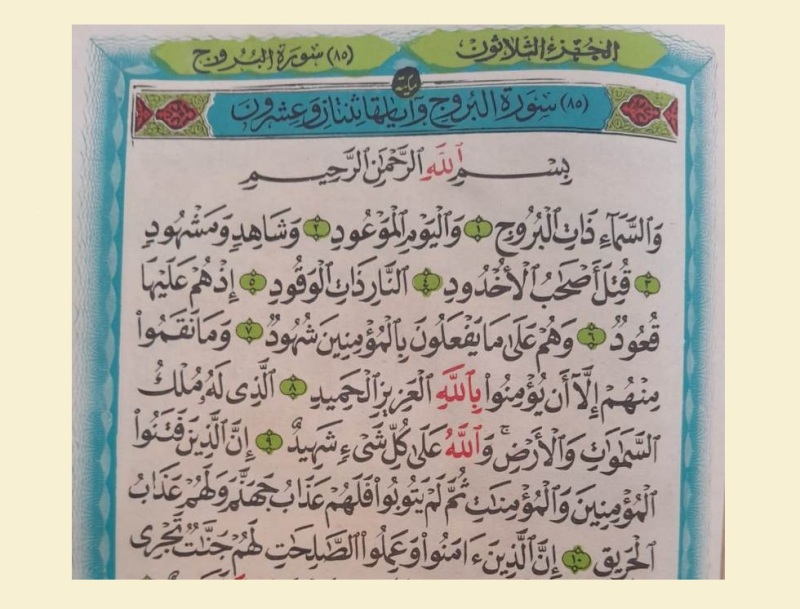 الجزء الثلاثون
(٨٥) سورة البروج
مكية
(٨٥) سورة البروج وآياتها ثنتان وعشرون
بِسْمِ ٱللَّهِ ٱلرَّحْمَٰنِ ٱلرَّحِيمِ
وَٱلسَّمَآءِ ذَاتِ ٱلْبُرُوجِ ١ وَٱلْيَوْمِ ٱلْمَوْعُودِ ٢ وَشَاهِدٍ وَمَشْهُودٍ
٣ قُتِلَ أَصْحَٰبُ ٱلْأُخْدُودِ ٤ ٱلنَّارِ ذَاتِ ٱلْوَقُودِ ٥ إِذْ هُمْ عَلَيْهَا
قُعُودٌ ٦ وَهُمْ عَلَىٰ مَا يَفْعَلُونَ بِٱلْمُؤْمِنِينَ شُهُودٌ ٧ وَمَا نَقَمُوا۟
مِنْهُمْ إِلَّآ أَن يُؤْمِنُوا۟ بِٱللَّهِ ٱلْعَزِيزِ ٱلْحَمِيدِ ٨ ٱلَّذِى لَهُۥ مُلْكُ
ٱلسَّمَٰوَٰتِ وَٱلْأَرْضِ ۚ وَٱللَّهُ عَلَىٰ كُلِّ شَىْءٍ شَهِيدٌ ٩ إِنَّ ٱلَّذِينَ فَتَنُوا۟
ٱلْمُؤْمِنِينَ وَٱلْمُؤْمِنَٰتِ ثُمَّ لَمْ يَتُوبُوا۟ فَلَهُمْ عَذَابُ جَهَنَّمَ وَلَهُمْ عَذَابُ
ٱلْحَرِيقِ ١٠ إِنَّ ٱلَّذِينَ ءَامَنُوا۟ وَعَمِلُوا۟ ٱلصَّٰلِحَٰتِ لَهُمْ جَنَّٰتٌ تَجْرِى